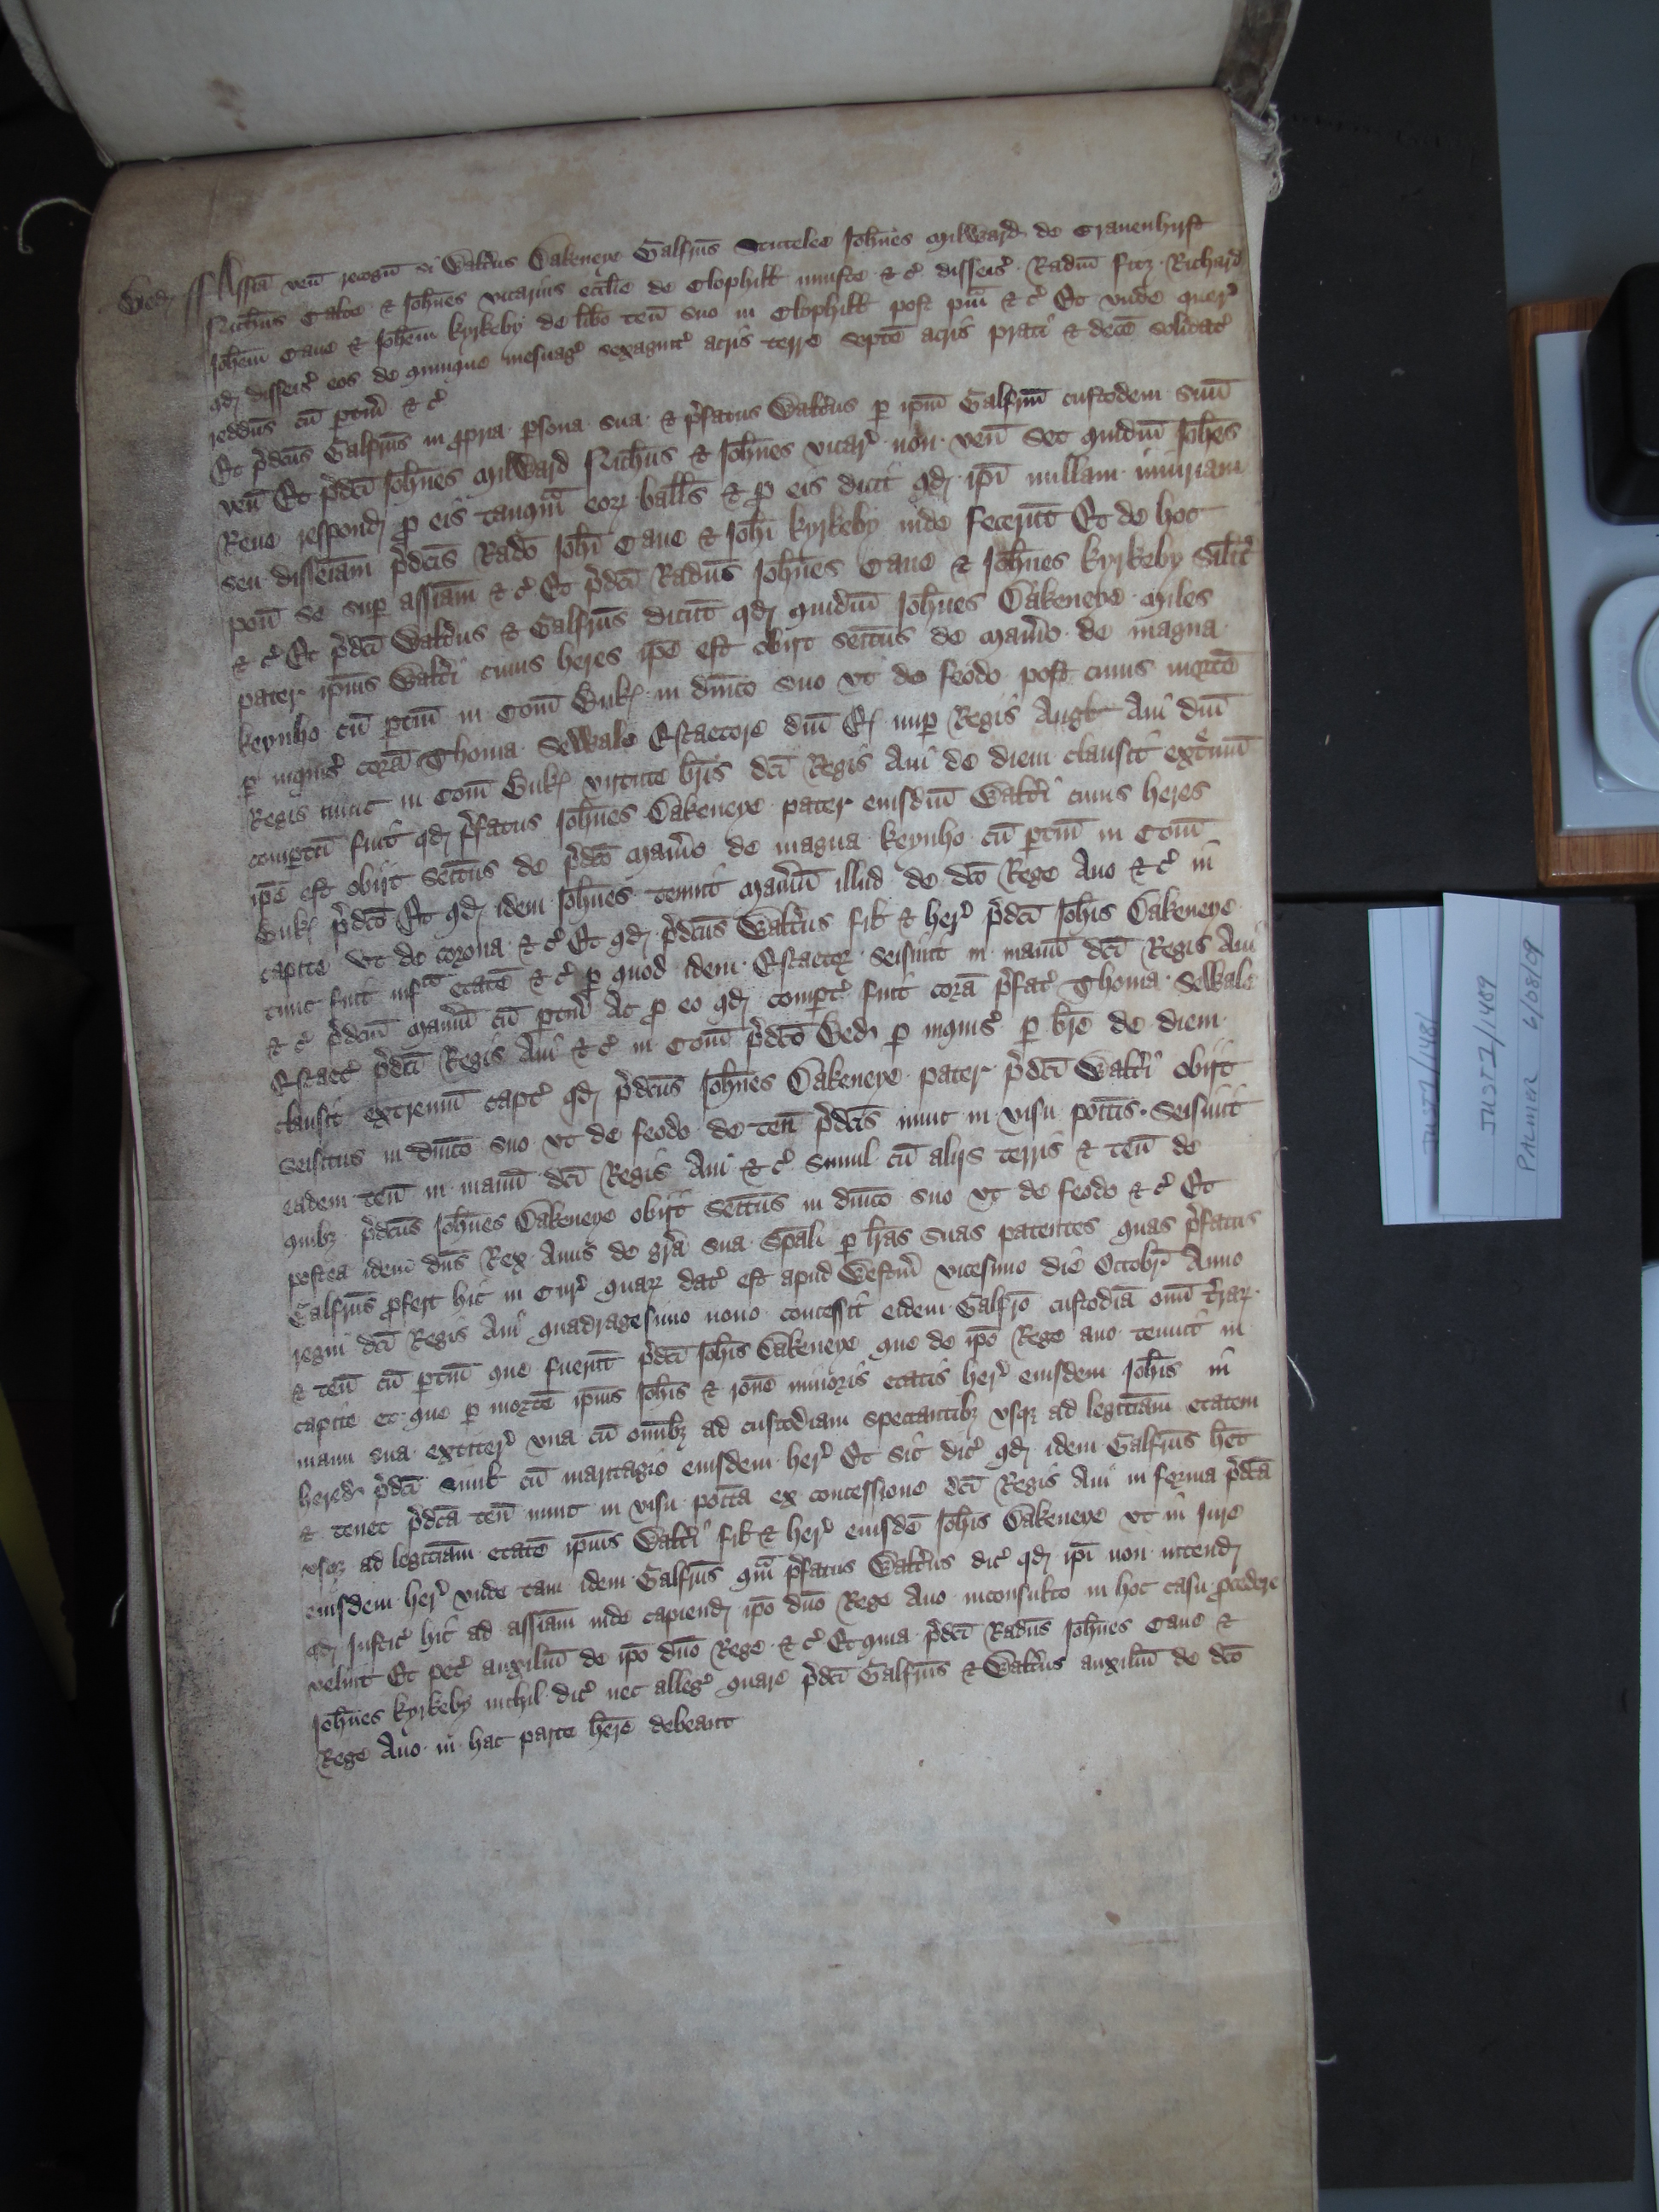 Bed ss Assīa ven̄ recogn̄ si Walt̄us Dakeneye Galfrūs Stuteley Joh̄nes Milward de Cravenhyrst
Nich̄us Calve & Joh̄nes vicarius ecc̄lie de Clophill iniuste & c̄ disseis̄ Rad̄m fitz Richard
Joh̄em Cave & Joh̄em Kyrkeby de lib̄o ten̄ suo in Clophill post p̄m̄ & c̄ Et unde quer̄
qd̄ disseis̄ eos de quinque mesuaḡ sexagint̄ acris terre septē acris prati & decē solidat̄
reddūs cū p̄tin̄ & c̄
Et p̄dc̄us Galfrūs in p̄pria p̄sona sua & p̄fatus Walt̄us p̄ ip̄m Galfrm̄ custodem suū
ven̄ Et p̄dc̄i Joh̄nes Milward Nich̄us & Joh̄nes vicar̄ non ven̄ Set quidm̄ Joh̄es
Reve respond̄ p̄ eis tanqm̄ eoꝝ ball̄s & p̄ eis dicit qd̄ ip̄i nullam iniuriam
seu disseiam̄ p̄dc̄is Rad̄o Joh̄i Cave & Joh̄i Kyrkeby inde fecerūt Et de hoc
pon̄ se sup̄ assiam̄ & c̄ Et p̄dc̄i Rad̄us Joh̄nes Cave & Joh̄nes Kyrkeby Silit̄
& c̄ Et p̄dc̄i Walt̄us & Galfrūs dicūt qd̄ quidm̄ Joh̄nes Dakeneye miles
pater ip̄ius Walt̄i cuius heres ip̄e est obijt seitūs de man̄io de magna
Keynho cū p̄tin̄ in Com̄ Buk̄ in dn̄ico suo ut de feodo post cuius mortē
p̄ inquis̄ corā Thoma Sewale Escaetore dn̄i E nup̄ Regis Angl̄ Avi dn̄i
Regis nunc in Com̄ Buk̄ virtute br̄is dc̄i Regis Avi de diem clausit ext̄mū
comptū fuit qd̄ p̄fatus Joh̄nes Dakeneye pater eiusdm̄ Walt̄i cuius heres
ip̄e est obijt seitūs de p̄dc̄o man̄io de magna Keynho cū p̄tin̄ in Com̄
Buk̄ p̄dc̄o Et qd̄ idem Joh̄nes tenuit man̄iū illud de dc̄o Rege Avo & c̄ in
capite ut de corona & c̄ Et qd̄ p̄dc̄us Walt̄us fil̄ & her̄ p̄dc̄i Joh̄is Dakeneye
tunc fuit infra etatē & c̄ p̄ quod idem Escaetor seisivit in manū dc̄i Regis Avi
& c̄ p̄dc̄m man̄iū cū p̄tin̄ Ac p̄ eo qd̄ compt̄ fuit corā p̄fat̄ Thoma Sewale
Escaet̄ p̄dc̄i Regis Avi & c̄ in Com̄ p̄dc̄o Bed p̄ inquis̄ p̄ br̄e de diem
clausit extremū capt̄ qd̄ p̄dc̄us Joh̄nes Dakeneye pater p̄dc̄i Walt̄i obijt
seisitus in dn̄ico suo ut de feodo de ten̄ p̄dc̄is nunc in visu poitis Seisivit
eadem ten̄ in manū dc̄i Regis Avi & c̄ simul cū alijs terris & ten̄ de
quibꝫ p̄dc̄us Joh̄nes Dakeneye obijt seitūs in dn̄ico suo ut de feodo & c̄ Et
postea idem dn̄s Rex Avus de gr̄a sua Sp̄ali p̄ lr̄as suas patentes quas p̄fatus
Galfrūs p̄fert hic in Cur̄ quaꝝ dat̄ est apud Westm̄ vicesimo die Octobr̄ Anno
regni dc̄i Regis Avi quadragesimo nono concessit eidem Galfro custodiā om̄i t̄raꝝ
& ten̄ cū p̄tin̄ que fuerūt p̄dc̄i Joh̄is Dakeneye que de ip̄o Rege avo tenuit in
capite et que p̄ mortē ip̄ius Joh̄is & rōne minoris etatis her̄ eiusdem Joh̄is in
manu sua extiter̄ una cū om̄ibꝫ ad custodiam spectantibꝫ usqꝫ ad legitīam etatem
hered̄ p̄dc̄i simul cū maritagio eiusdem her̄ Et sic dic̄ qd̄ idem Galfrūs h̄et
& tenet p̄dc̄a ten̄ nunc in visu poita ex concessione dc̄i Regis Avi in forma p̄dc̄a
usqꝫ ad legitīam etatē ip̄ius Walt̄i fil̄ & her̄ eiusdē Joh̄is Dakeneye ut in iure
eiusdem her̄ unde tam idem Galfrūs qm̄ p̄fatus Walt̄us dic̄ qd̄ ip̄i non intend̄
qd̄ Justic̄ hic ad assiam̄ inde capiend̄ ip̄o dn̄o Rege Avo inconsulto in hoc casu p̄cedere
velint Et pet̄ auxiliū de ip̄o dn̄o Rege & c̄ Et quia p̄dc̄i Rad̄us Joh̄nes Cave &
Joh̄nes Kyrkeby nichil dic̄ nec alleḡ quare p̄dc̄i Galfrūs & Walt̄us auxiliū de dc̄o
Rege Avo in hac parte h̄ere debeant
JUST1/1481
JUST2/1489
PALMER 6/08/09